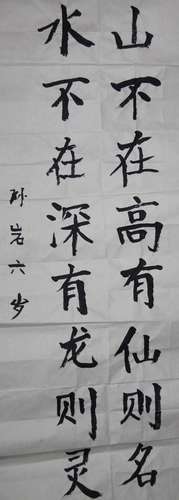 山不在高有仙则名
水不在深有龙则灵
孙岩六岁